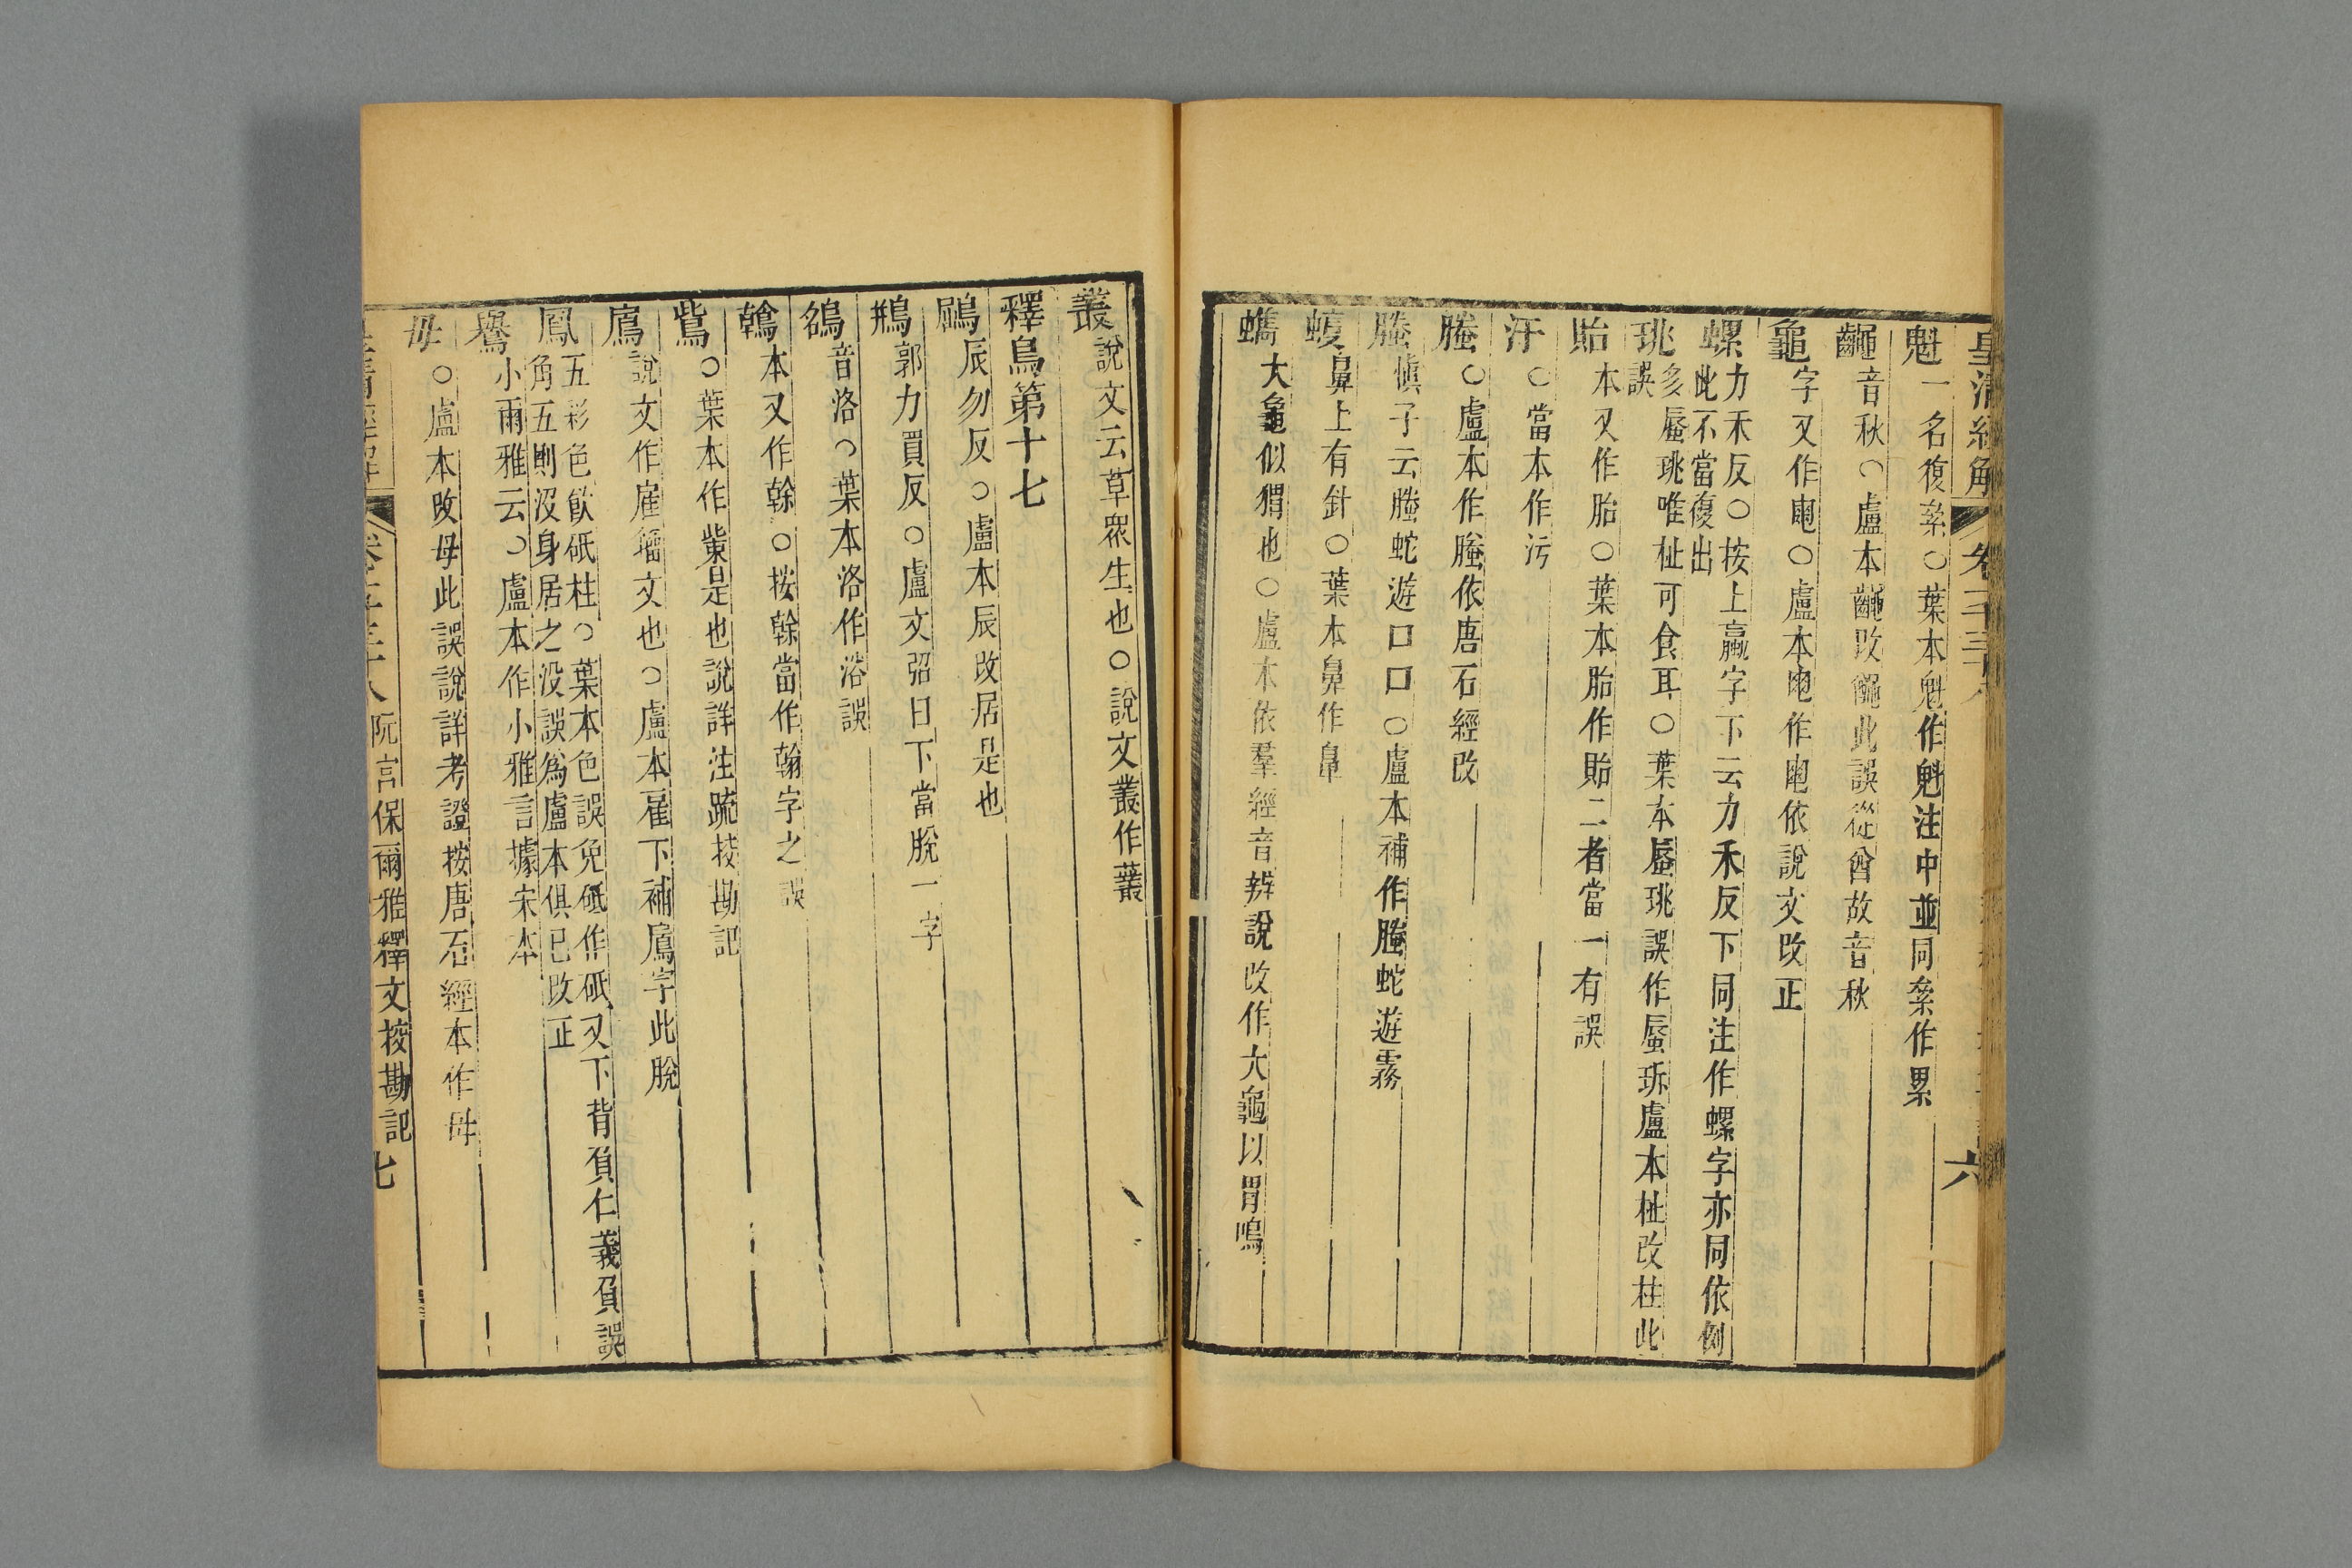 皇清經解 卷千三十八 六
魁一名復絫○葉本魁作魁注中並同絫作累
音秋○盧本改此誤從酋故音秋
龜字又作○盧本作依說文改正
螺力禾反○按上蠃字下云力禾反下同注作螺字亦同依例
此不當復出
珧多蜃珧唯杫可食耳○葉本蜃珧誤作蜃珎盧本杫改柱此
誤
貽本又作胎○葉本胎作貽二者當一有誤
汙○當本作污
螣○盧本作螣依唐石經改
螣慎子云螣蛇遊口口○盧本補作螣蛇遊霧
蝮鼻上有針○葉本鼻作鼻
蠵大龜似猬也○盧本依羣經音辨說改作大龜以胃鳴
叢說文云草眾生也○說文叢作叢
釋鳥第十七
鶌辰勿反○盧本辰改居是也
郭力買反○盧文弨曰下當脫一字
鵅音洛○葉本洛作浴誤
鶾本又作䳚○按䳚當作翰字之誤
鴜○葉本作是也說詳注疏挍勘記
鳸說文作雇籀文也○盧本雇下補鳸字此脫
鳳五彩色飲砥柱○葉本色誤免砥作砥又下背負仁義負誤
角五則沒身居之沒誤為盧本俱已改正
鸒小爾雅云○盧本作小雅言據宋本
母○盧本改毋此誤說詳考證按唐石經本作毋
皇清經解 卷千三十八 阮宮保爾雅釋文挍勘記 七